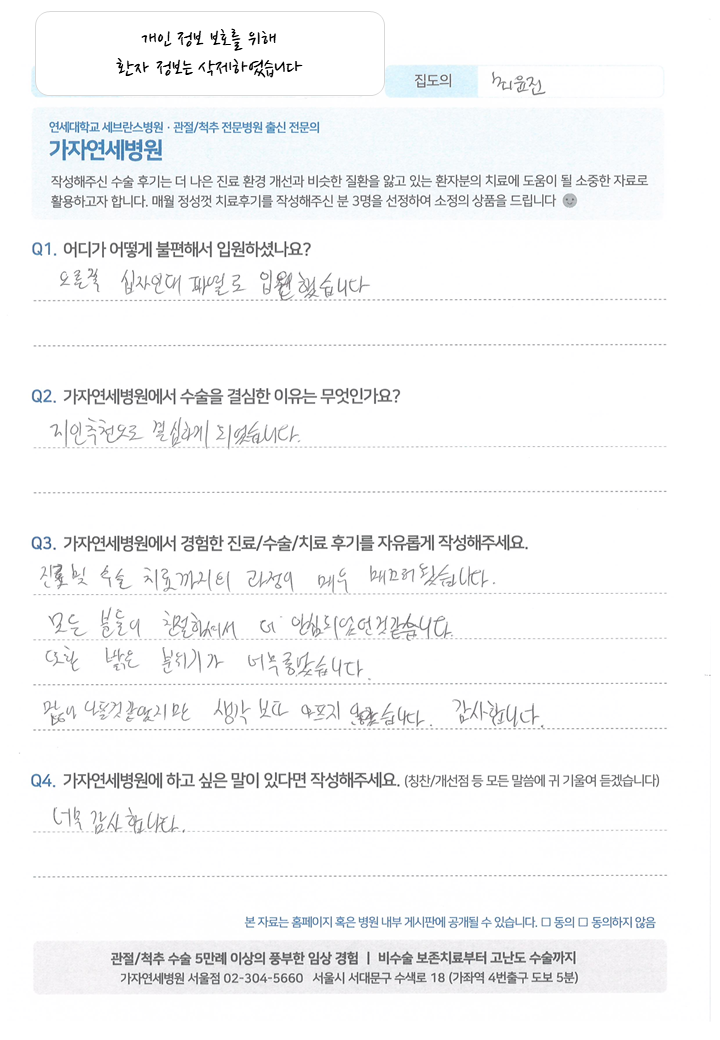 개인 정보 보호를 위해
환자 정보는 삭제하였습니다
집도의 최윤진
연세대학교 세브란스병원 · 관절/척추 전문병원 출신 전문의
가자연세병원
작성해주신 수술 후기는 더 나은 진료 환경 개선과 비슷한 질환을 앓고 있는 환자분의 치료에 도움이 될 소중한 자료로
활용하고자 합니다. 매월 정성껏 치료후기를 작성해주신 분 3명을 선정하여 소정의 상품을 드립니다
Q1. 어디가 어떻게 불편해서 입원하셨나요?
오른쪽 십자인대 파열로 입원했습니다
Q2. 가자연세병원에서 수술을 결심한 이유는 무엇인가요?
지인추천으로 결심하게 되었습니다.
Q3. 가자연세병원에서 경험한 진료/수술/치료 후기를 자유롭게 작성해주세요.
진료 및 수술 치료까지의 과정이 매우 매끄러웠습니다.
모든 분들이 친절하셔서 더 안심되었던것같습니다.
또한 밝은 분위기가 너무좋았습니다.
많이 아플것같았지만 생각 보다 아프지 않았습니다. 감사합니다.
Q4. 가자연세병원에 하고 싶은 말이 있다면 작성해주세요. (칭찬/개선점 등 모든 말씀에 귀 기울여 듣겠습니다)
너무 감사합니다.
본 자료는 홈페이지 혹은 병원 내부 게시판에 공개될 수 있습니다. □ 동의 □ 동의하지 않음
관절/척추 수술 5만례 이상의 풍부한 임상 경험 | 비수술 보존치료부터 고난도 수술까지
가자연세병원 서울점 02-304-5660 서울시 서대문구 수색로 18 (가좌역 4번출구 도보 5분)